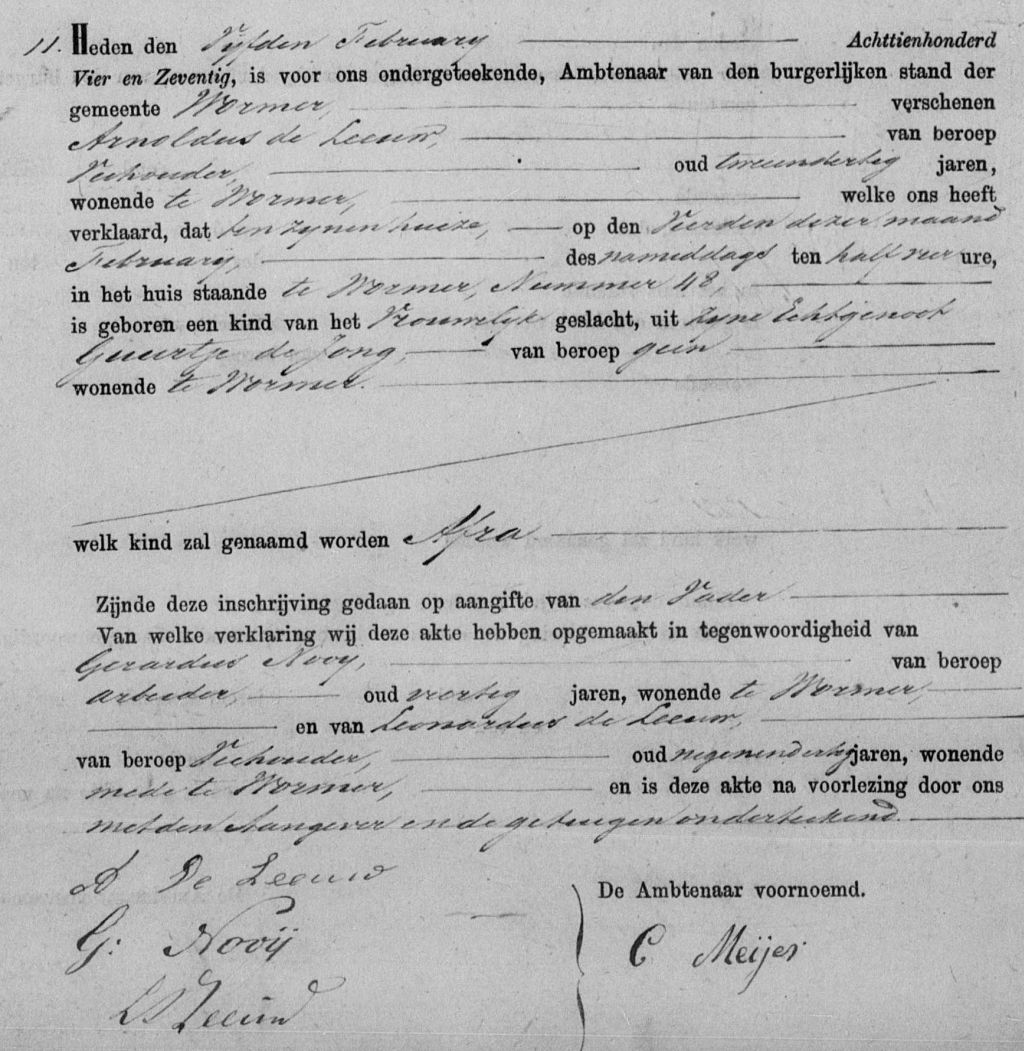 11. Heden den Vyfden February Achttienhonderd
Vier en Zeventig, is voor ons ondergeteekende, Ambtenaar van den burgerlijken stand der
gemeente Wormer, verschenen
Arnoldus de Leeuw, van beroep
Veehouder, oud tweeendertig jaren,
wonende te Wormer, welke ons heeft
verklaard, dat ten zynen huize, op den Vierden dezer maand
February, des namiddags ten half vier ure,
in het huis staande te Wormer, Nummer 48,
is geboren een kind van het Vrouwelyk geslacht, uit zyne Echtgenoot
Guurtje de Jong, van beroep geen
wonende te Wormer.
welk kind zal genaamd worden Afra
Zijnde deze inschrijving gedaan op aangifte van den Vader
Van welke verklaring wij deze akte hebben opgemaakt in tegenwoordigheid van
Gerardus Nooy, van beroep
arbeider, oud veertig jaren, wonende te Wormer,
en van Leonardus de Leeuw,
van beroep Veehouder, oud negenendertig jaren, wonende
mede te Wormer, en is deze akte na voorlezing door ons
met den Aangever en de getuigen onderteekend.
A De Leeuw
De Ambtenaar voornoemd.
G: Nooij
C Meijer
L D Leeuw